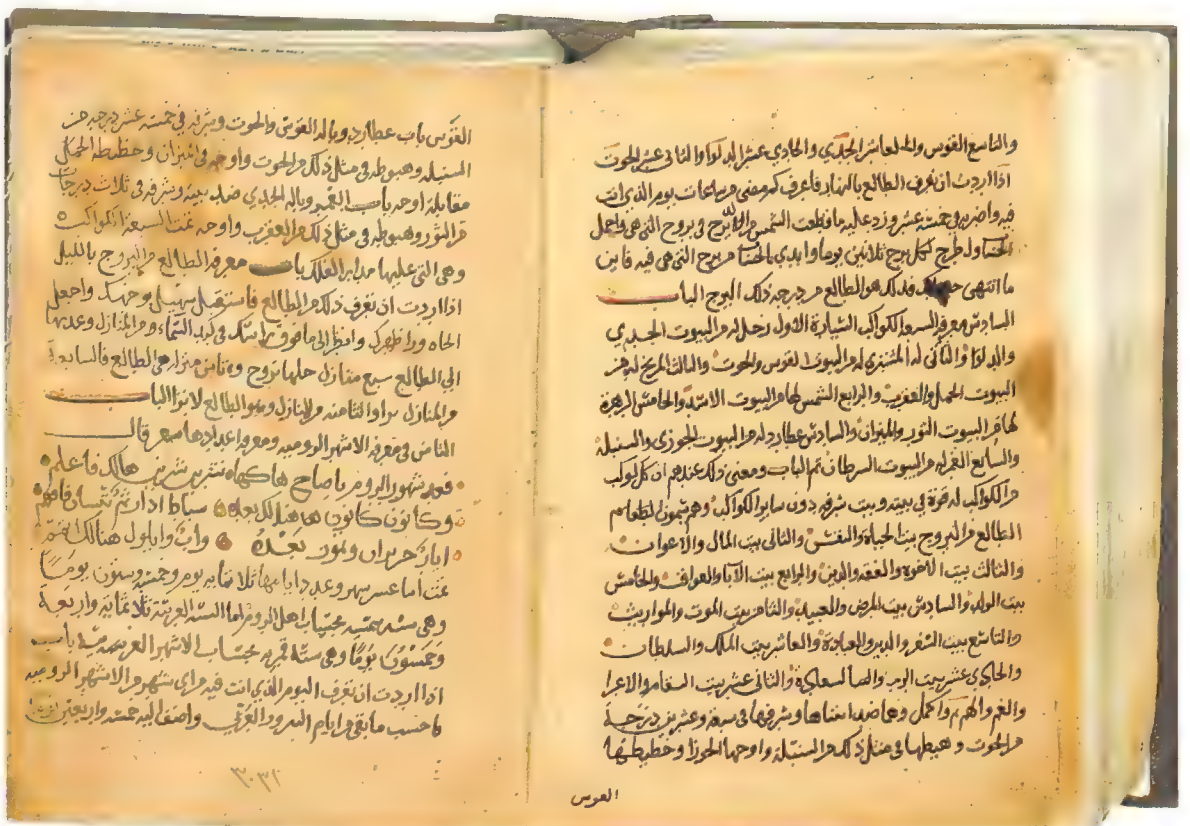 والتاسع القوس والعاشر الجدي والحادي عشر الدلو والثاني عشر الحوت
اذا اردت ان تعرف الطالع بالنهار فاعرف كم مضى من ساعات يوم الذي انت
فيه واضربه في خمسة عشر وزد عليه ما قطعت الشمس من الابرج في بروج التي هي واجمل
الحساب ولطرح لكل برج ثلاثين يوما وابدي بالحساب من برج التي هي فيه فاين
ما انتهى فذلك هو الطالع من درجه ذلك البرج الباب
السادس معرفة السبعة الكواكب السيارة الاول زحل له من البيوت الجدي
والدلو والثاني له المشتري له من البيوت القوس والحوت والثالث المريخ له من
البيوت الحمل والعقرب والرابع الشمس لها من البيوت الاسد والخامس الزهرة
لها من البيوت الثور والميزان والسادس عطارد له من البيوت الجوزى والسنبلة
والسابع القمر له من البيوت السرطان تم الباب ومعنى ذلك عندهم ان كل كوكب
من الكواكب له قوة في بيته وبيت شرفه دون ساير الكواكب وهم يتمون لطعام
الطالع من البروج بيت الحياة والنفس والثاني بيت المال والاعوان
والثالث بيت الاخوة والفقه والدين والرابع بيت الآبا والعواقب والخامس
بيت الولد والسادس بيت المرض والعبيد والثامن بيت الموت والمواريث
والتاسع بيت السفر والدين والعبادة والعاشر بيت الملك والسلطان
والحادي عشر بيت والسعادة والثاني عشر بيت الشقا والاعدا
والغم والهم وشرفها في سبعة وعشرين درجة
من الحوت وهبوطها في مثل ذلك من السنبلة واوجها الجوزا وحضيضها
القوس
القوس باب عطارد وباله القوس والحوت وشرفه في خمسة عشر درجه من
السنبله وهبوطه في مثل ذلك من الحوت واوجه في الميزان وحضيضه الحمل
مقابلة اوجه باب القمر وباله الجدي ضد بيته وشرفه في ثلاث درجات
من الثور وهبوطه في مثل ذلك من العقرب واوجه تمت السبعة الكواكب
وهي التي عليها مدار الفلك باب معرفة الطالع من البروج بالليل
اذا اردت ان تعرف ذلك من الطالع فاستقبل سهيل بوجهك واجعل
الجاه ورا ظهرك وانظر الى ما فوق راسك في كبد السماء من المنازل وعدها
الى الطالع سبع منازل وثامن منزله هي الطالع فالسابعة
من المنازل والثامنه من المنازل وهو الطالع الباب
الثامن في معرفة الاشهر الروميه ومعرفة اعدادها شعر قال
فعد شهور الروم يا صاح هاكها تشرين تشرين هالك فاعلم
وكانون كانون سباط اذار ثم نيسان فافهم
ايار حزيران وتموز بعده وآب وايلول هنالك تم
تمت اثنا عشر شهر وعدد ايامها ثلاثمايه يوم وخمسة وستون يوما
وهي سنة شمسية بحساب اهل الروم اما السنة العربية ثلاثماية واربعة
وخمسون يوما وهي سنة قمرية بحساب الاشهر العربية باب
اذا اردت ان تعرف اليوم الذي انت فيه من اي شهر من الاشهر الروميه
فاحسب ما بقي من ايام واضف اليه خمسة واربعين
٣٠٣١